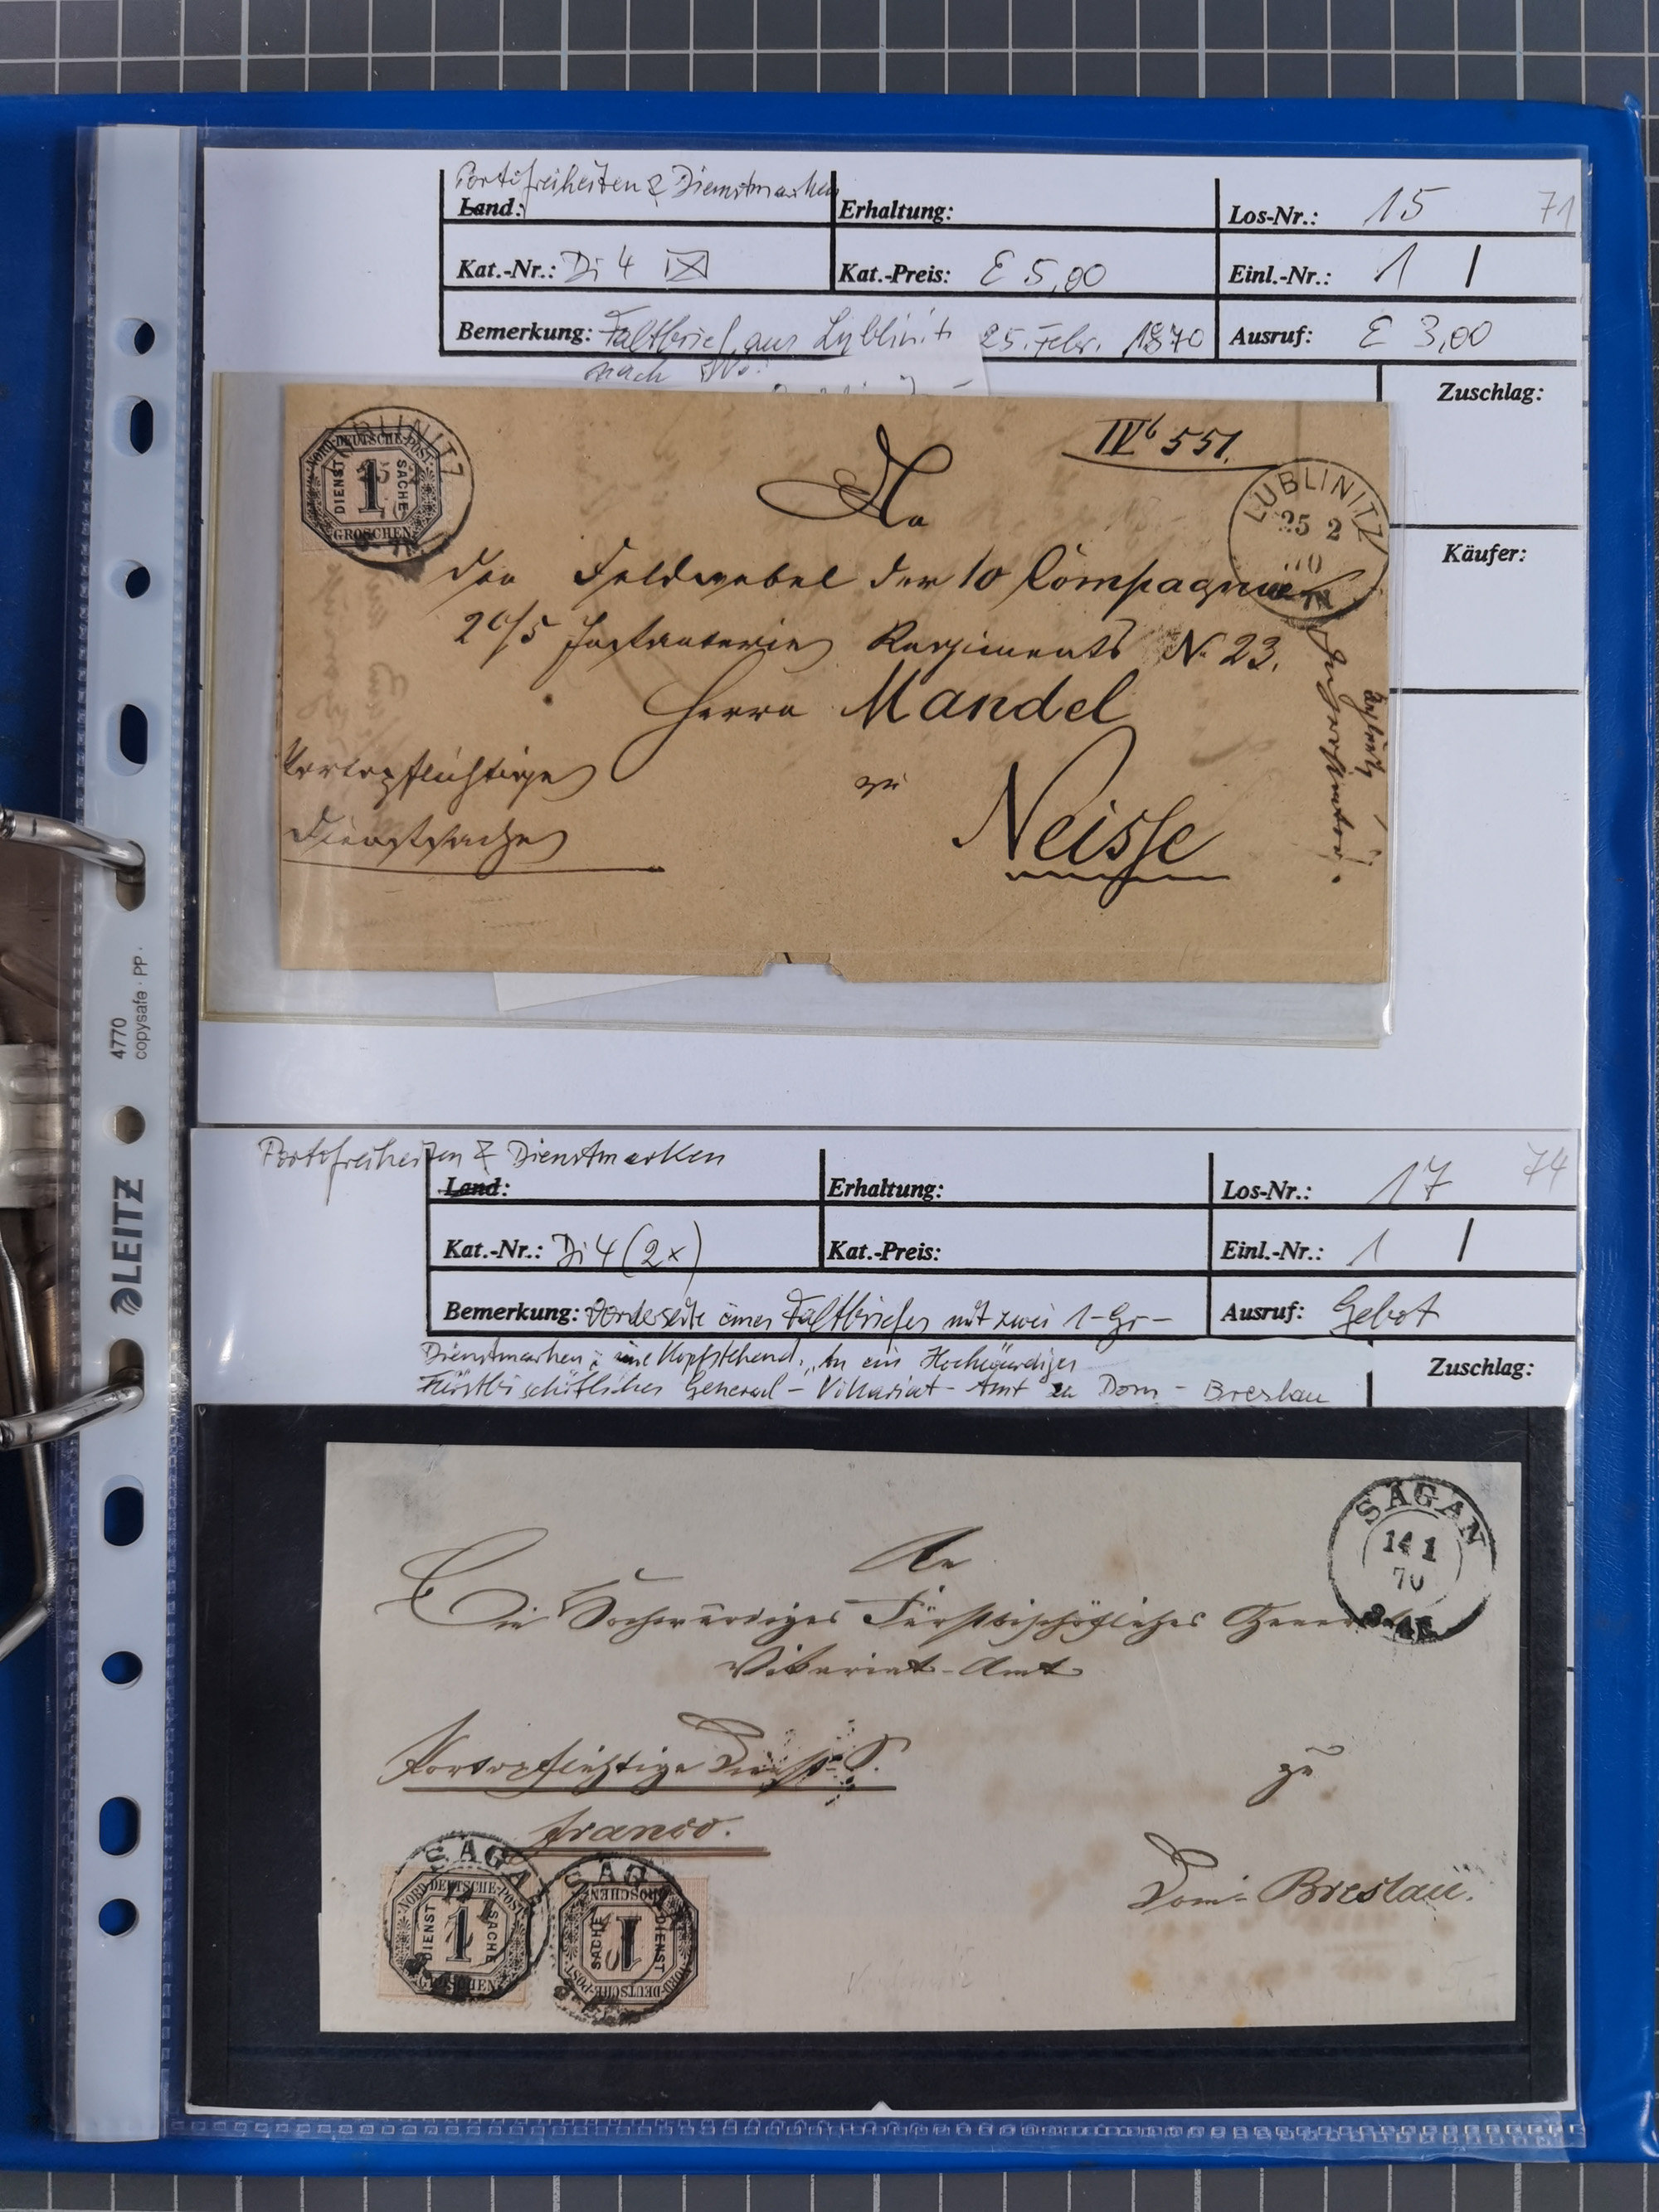 Portofreiheiten & Dienstmarken
Land:
Erhaltung:
Los-Nr.: 15 71
Kat.-Nr.: Di 4
Kat.-Preis: € 5,00
Einl.-Nr.: 1 |
Bemerkung: Faltbrief aus Lublinitz 25. Febr. 1870
Ausruf: € 3,00
nach
Zuschlag:
Käufer:
LUBLINITZ
NORD-DEUTSCHE-POST
DIENST 1 SACHE
GROSCHEN
IVb 551.
LUBLINITZ
25 2
70
An
den Feldwebel der 10 Compagnie
Infanterie Regiments N. 23.
Herrn Mandel
Portopflichtige
Dienstsache
zu
Neisse
4770
copysafe · PP ·
LEITZ
Portofreiheiten & Dienstmarken
Land:
Erhaltung:
Los-Nr.: 17 74
Kat.-Nr.: Di 4 (2x)
Kat.-Preis:
Einl.-Nr.: 1 |
Bemerkung: Vorderseite eines Faltbriefes mit zwei 1-Gr-
Ausruf: Gebot
Dienstmarken, eine Kopfstehend, "An ein Hochwürdiges
Fürstbischöfliches General-Vikariat-Amt zu Dom-Breslau
Zuschlag:
SAGAN
14 1
70
An
Ein Hochwürdiges Fürstbischöfliches General
Vikariat-Amt
Portopflichtige Dienst-S.
franco.
zu
Dom-Breslau.
SAGAN
NORD-DEUTSCHE-POST
DIENST 1 SACHE
GROSCHEN
SAGAN
NORD-DEUTSCHE-POST
DIENST 1 SACHE
GROSCHEN